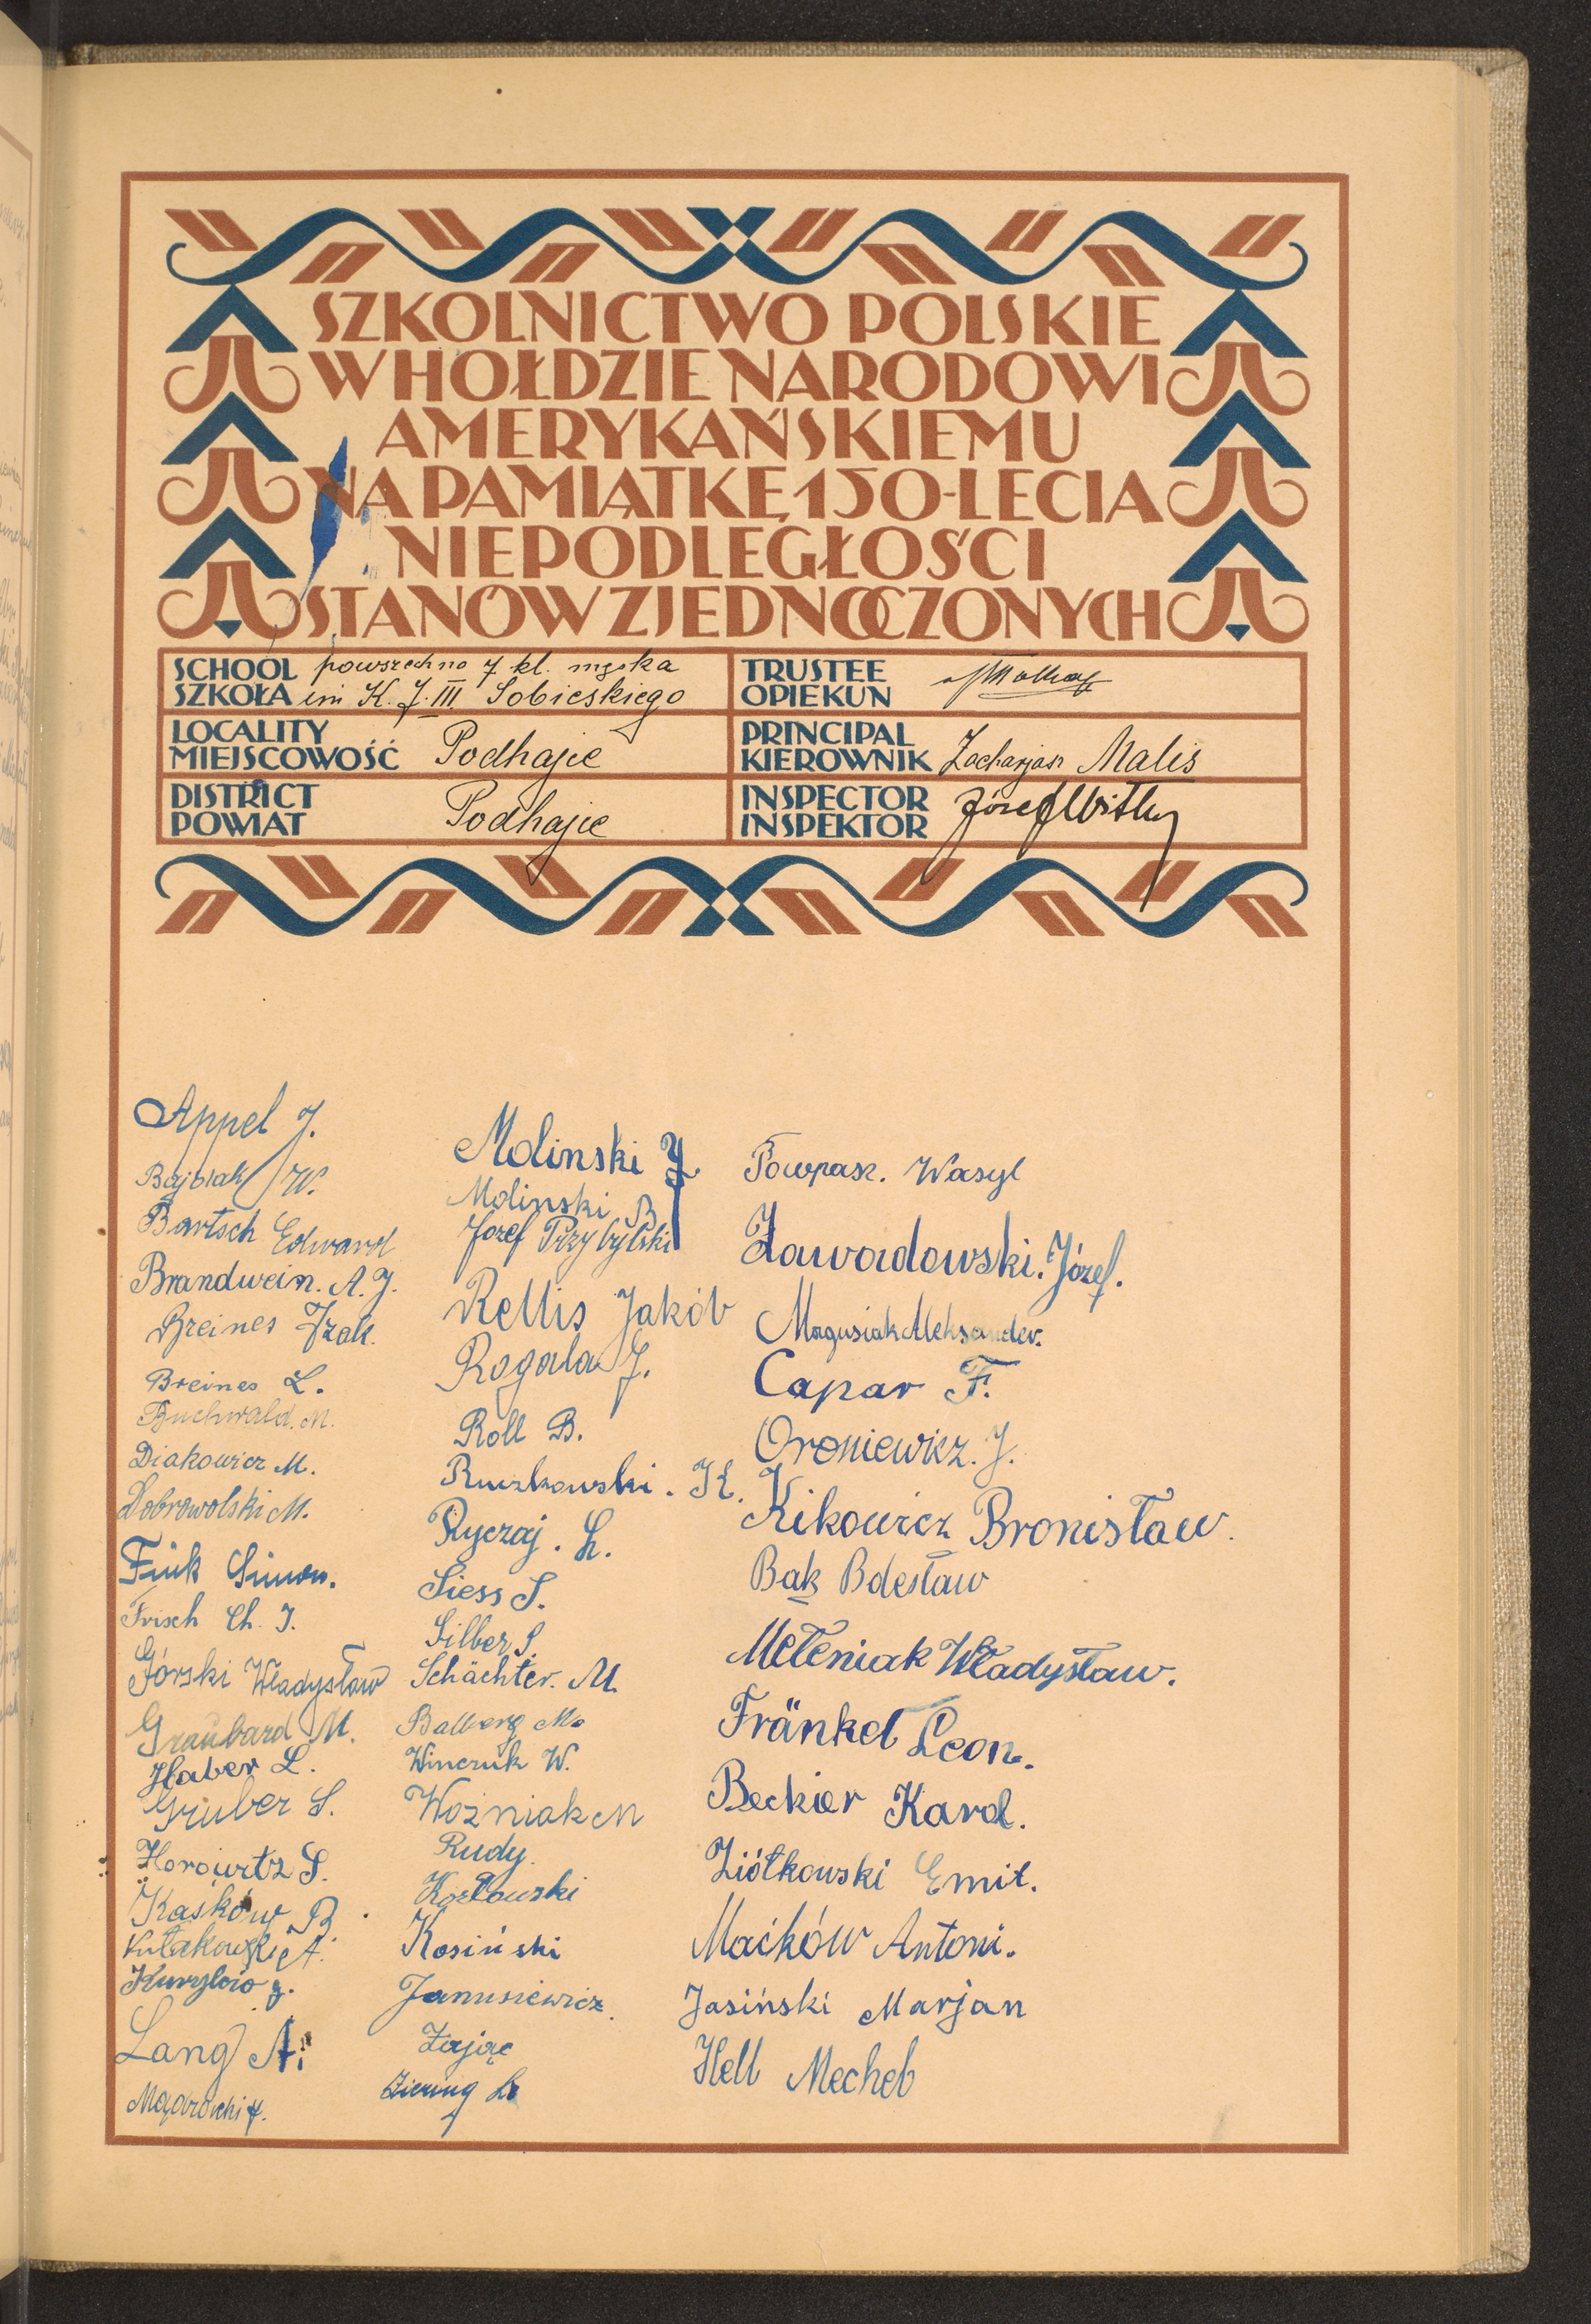 SZKOLNICTWO POLSKIE
W HOŁDZIE NARODOWI
AMERYKAŃSKIEMU
NA PAMIĄTKĘ 150-LECIA
NIEPODLEGŁOŚCI
STANÓW ZJEDNOCZONYCH
SCHOOL
SZKOŁA
powszechna 7 kl. męska
im K. J. III. Sobieskiego
LOCALITY
MIEJSCOWOŚĆ
Podhajce
DISTRICT
POWIAT
Podhajce
TRUSTEE
OPIEKUN
PRINCIPAL
KIEROWNIK
Zacharjasz Malis
INSPECTOR
INSPEKTOR
Józef
Appel J.
W.
Bartsch Edward
Brandwein. A. J.
Breines Izak.
Breines L.
Buchwald. M.
Diakowicz M.
Dobrowolski M.
Fink Simon.
Frisch Ch. J.
Górski Władysław
Graubard M.
Haber L.
Gruber S.
Horowitz S.
Kaśków B.
Kułakowski A.
J.
Lang A.
Molinski J.
Molinski B
Jozef Przybylski
Rellis Jakób
Rogala J.
Roll B.
Ruczkowski. K.
Ryczaj. L.
Siess S.
Silber S.
Schächter. M.
Balberg M.
Winczuk W.
Woźniak M
Rudy.
Kozłowski
Kosiński
Janusiewicz.
Zając
Ziering L
Towpasz. Wasyl
Zawadowski. Józef.
Magusiak Aleksander.
Capar F.
Oroniewicz. J.
Kikowicz Bronisław.
Bak Bolesław
Meleniak Władysław.
Fränkel Leon.
Beckier Karol.
Ziółkowski Emil.
Maćków Antoni.
Jasiński Marjan
Hell Mechel